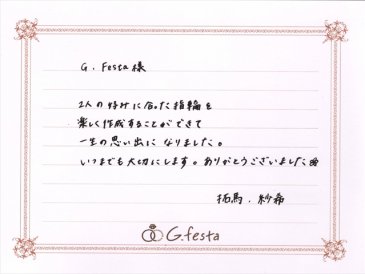 G.Festa様
2人の好みに合った指輪を
楽しく作成することができて
一生の思い出になりました。
いつまでも大切にします。ありがとうございました
拓馬・紗希
G.festa